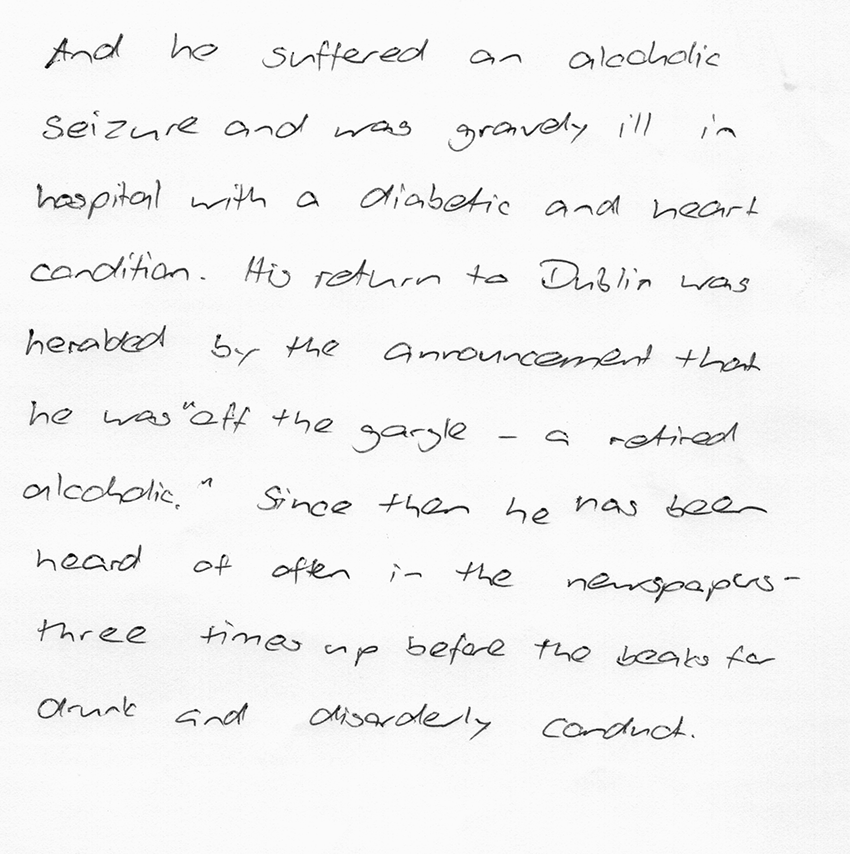 And he suffered an alcoholic
seizure and was gravely ill in
hospital with a diabetic and heart
condition. His return to Dublin was
heralded by the announcement that
he was "off the gargle - a retired
alcoholic." Since then he has been
heard of often in the newspapers -
three times up before the beaks for
drunk and disorderly conduct.